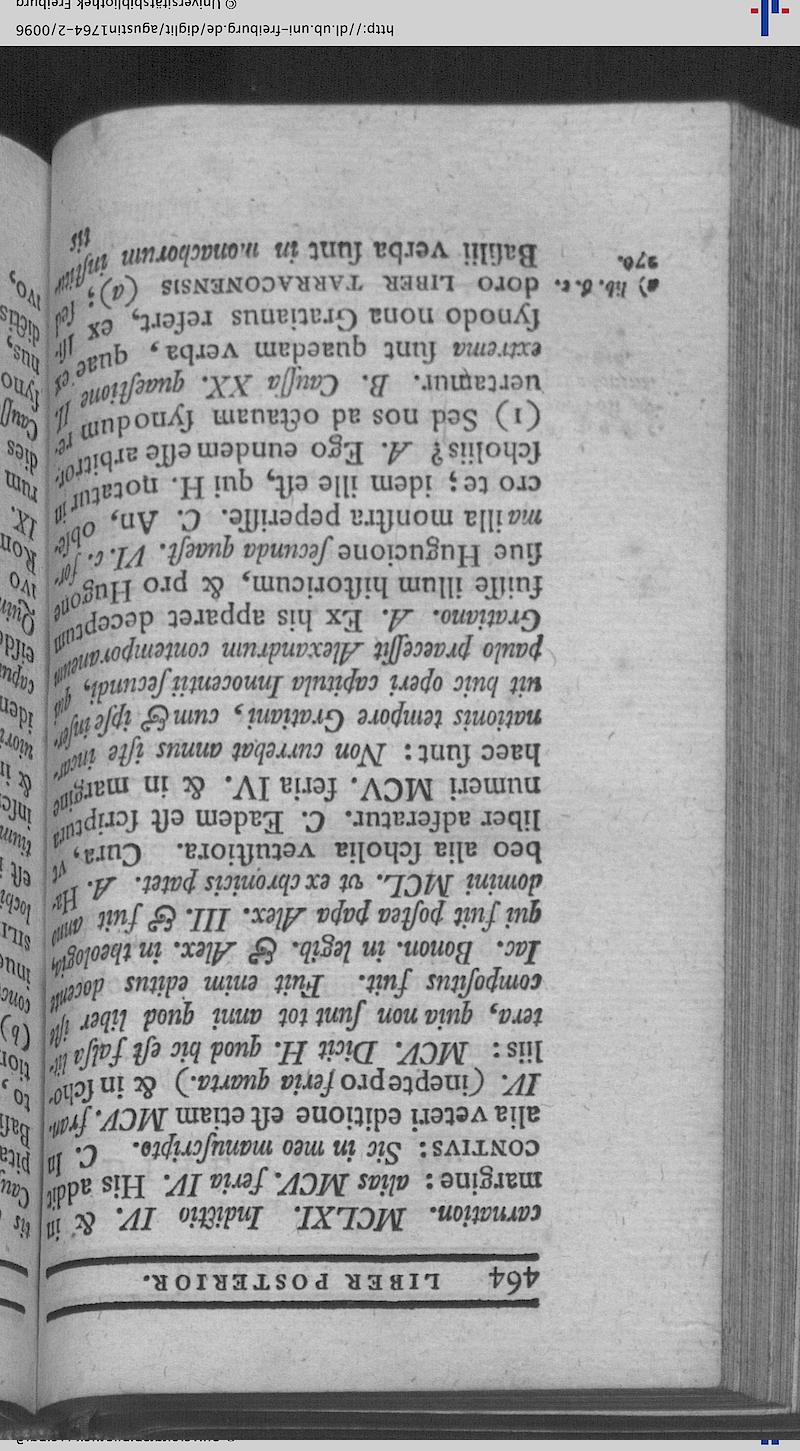 464 LIBER POSTERIOR.
carnation. MCLXI. Indictio IV. & in
margine: alias MCV. feria IV. His addit
CONTIVS: Sic in meo manuscripto. C. In
alia veteri editione est etiam MCV. fran.
IV. (inepte pro feria quarta.) & in scho-
liis: MCV. Dicit H. quod hic est falsa lit-
tera, quia non sunt tot anni quod liber iste
compositus fuit. Fuit enim editus docente
Iac. Bonon. in legib. & Alex. in theologia,
qui fuit postea papa Alex. III. & fuit anno
domini MCL. vt ex chronicis patet. A. Ha-
beo alia scholia vetustiora. Cura, vt
liber adferatur. C. Eadem est scriptura
numeri MCV. feria IV. & in margine
haec sunt: Non currebat annus iste incar-
nationis tempore Gratiani, cum & ipse inser-
uit huic operi capitula Innocentii secundi, qui
paulo praecessit Alexandrum contemporaneum
Gratiano. A. Ex his apparet deceptum
fuisse illum historicum, & pro Hugone
siue Hugucione secunda quaest. VI. c. for-
ma illa monstra peperisse. C. An, obse-
cro te; idem ille est, qui H. notatur in
scholiis? A. Ego eundem esse arbitror.
(1) Sed nos ad octauam synodum re-
uertamur. B. Caussa XX. quaestione II.
extrema sunt quaedam verba, quae ex
synodo nona Gratianus refert, ex Isi-
doro LIBER TARRACONENSIS (a); sed
Basilii verba sunt in monachorum institu-
tis
a) lib. 6. c.
270.
http://dl.ub.uni-freiburg.de/diglit/agustin1764-2/0096
© Universitätsbibliothek Freiburg